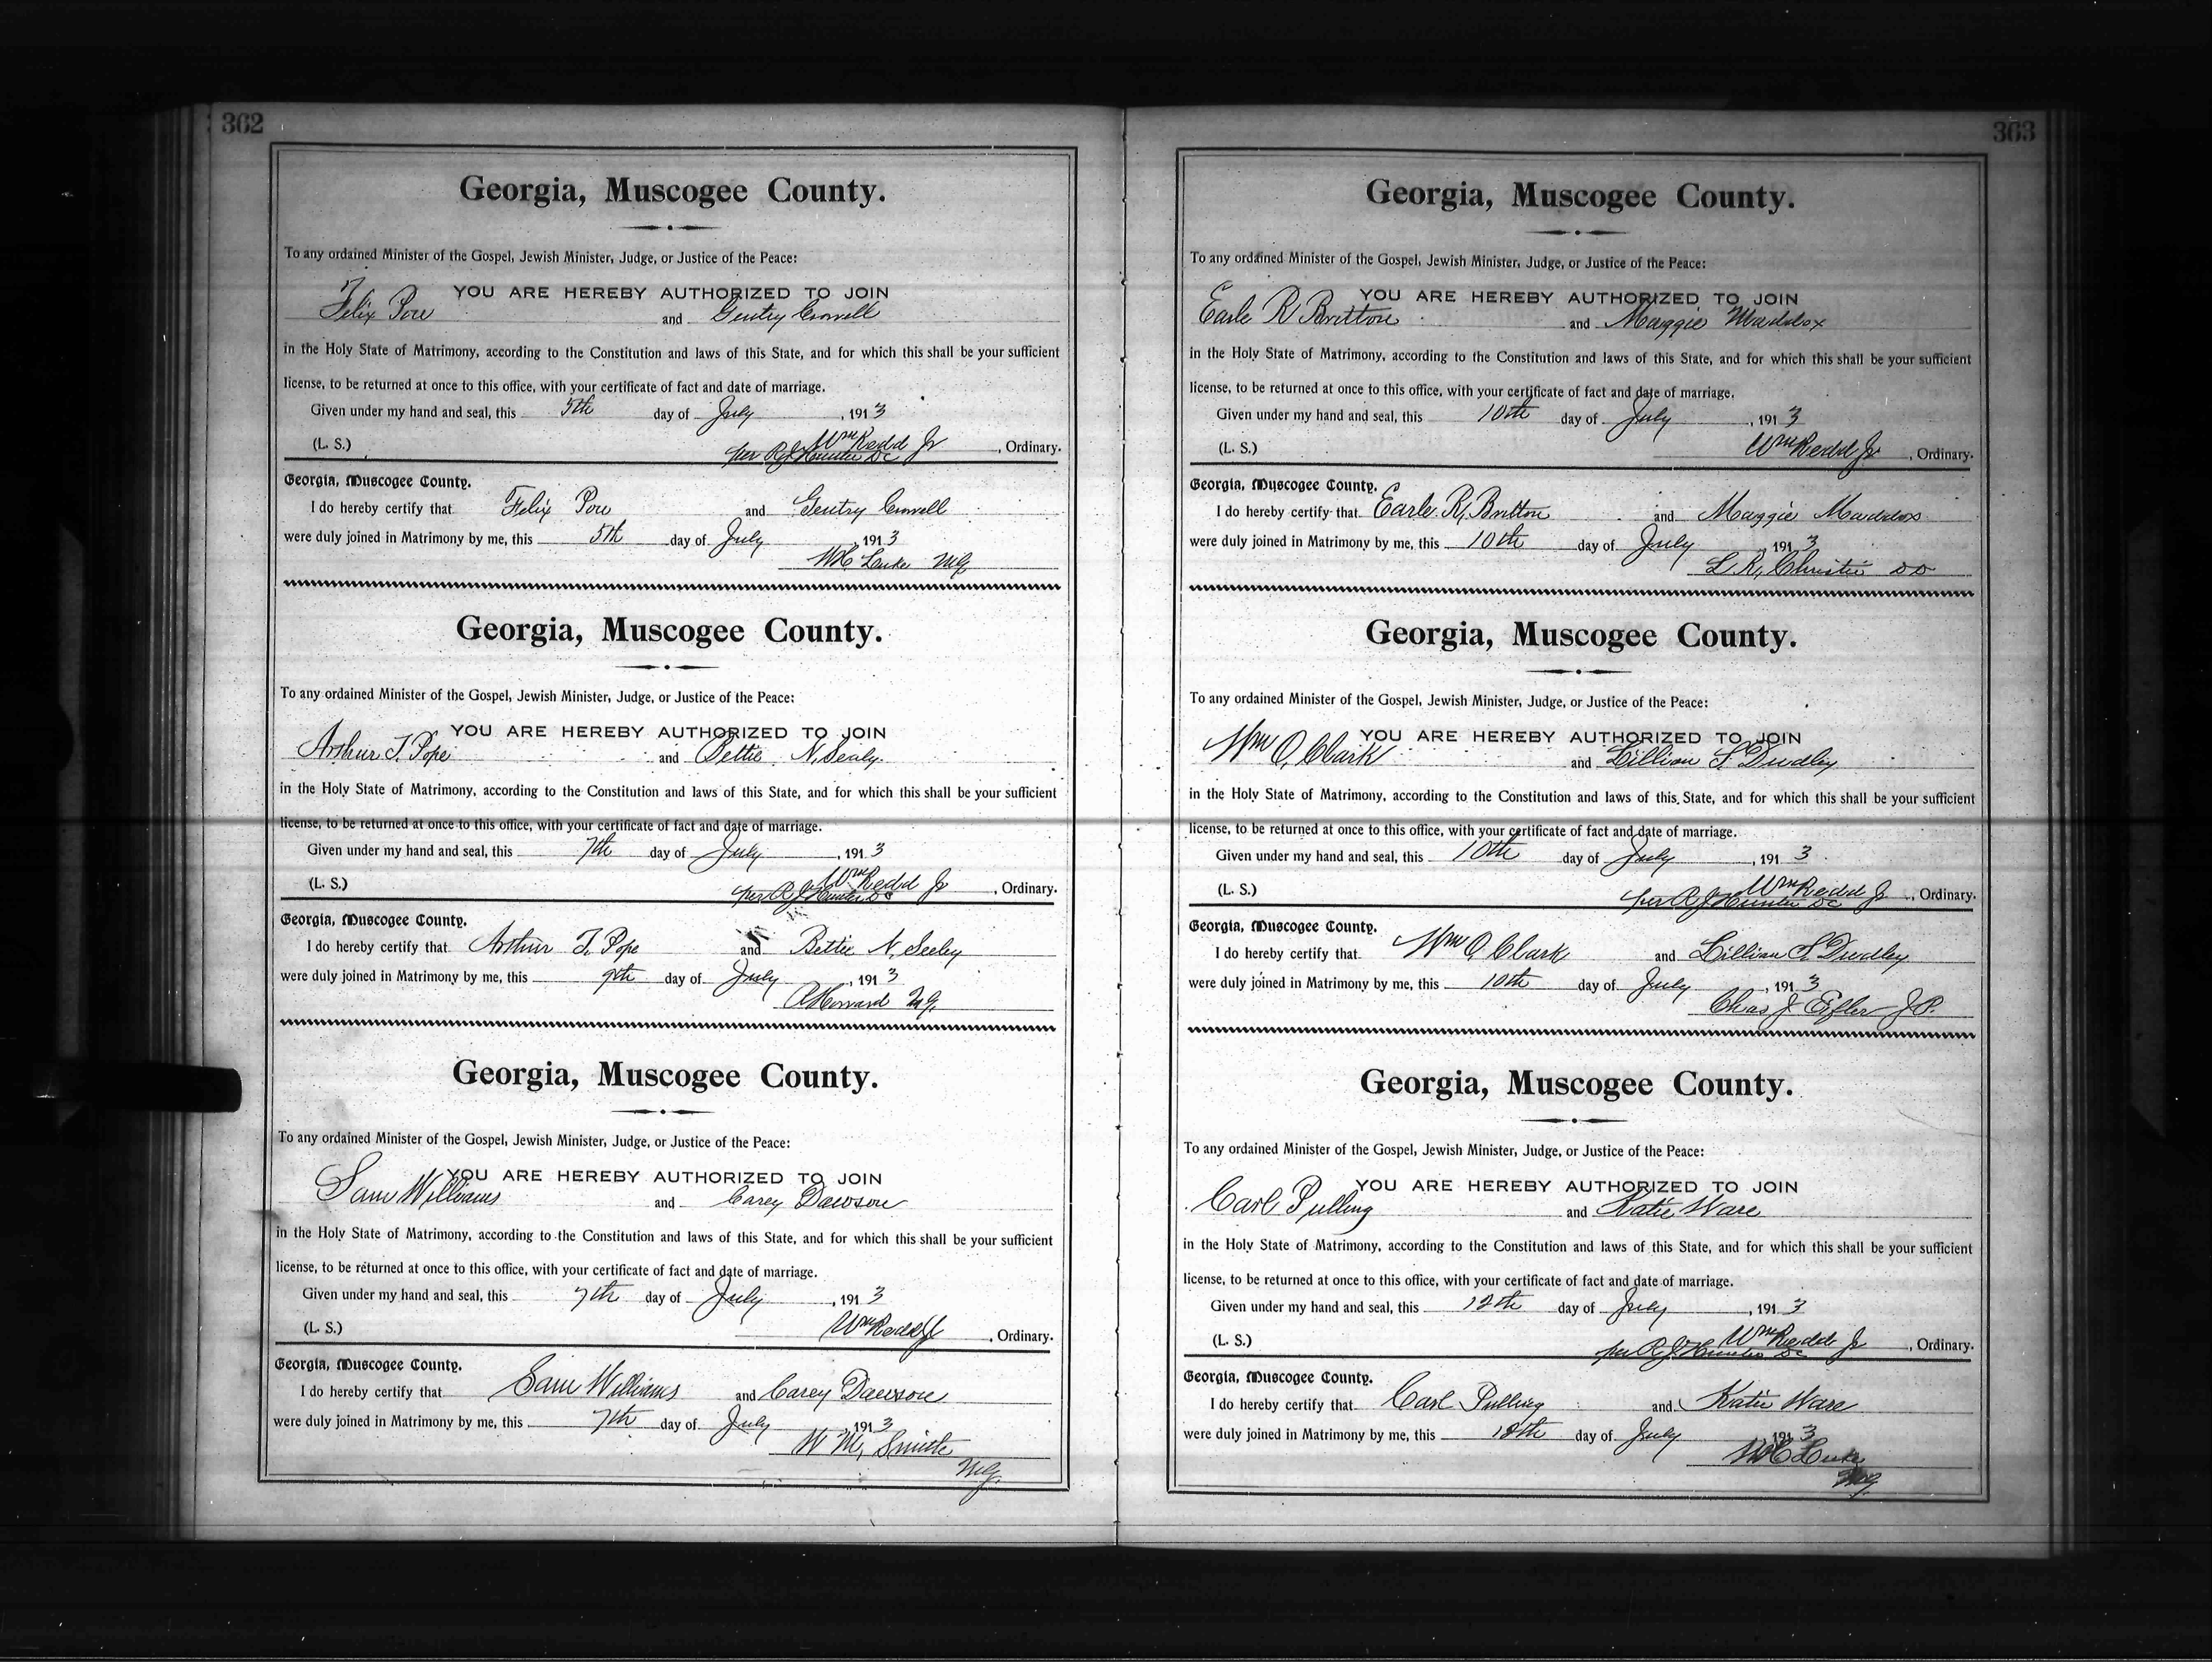 362
Georgia, Muscogee County.
To any ordained Minister of the Gospel, Jewish Minister, Judge, or Justice of the Peace:
YOU ARE HEREBY AUTHORIZED TO JOIN
Felix Pow and Gentry Crowell
in the Holy State of Matrimony, according to the Constitution and laws of this State, and for which this shall be your sufficient
license, to be returned at once to this office, with your certificate of fact and date of marriage.
Given under my hand and seal, this 5th day of July, 1913
Wm Redd Jr
(L. S.) per R J Hunter DC, Ordinary.
Georgia, Muscogee County.
I do hereby certify that Felix Pow and Gentry Crowell
were duly joined in Matrimony by me, this 5th day of July, 1913
W C Luke MG
Georgia, Muscogee County.
To any ordained Minister of the Gospel, Jewish Minister, Judge, or Justice of the Peace:
YOU ARE HEREBY AUTHORIZED TO JOIN
Arthur T. Pope and Bettie N. Sealy
in the Holy State of Matrimony, according to the Constitution and laws of this State, and for which this shall be your sufficient
license, to be returned at once to this office, with your certificate of fact and date of marriage.
Given under my hand and seal, this 7th day of July, 1913
Wm Redd Jr
(L. S.) per R J Hunter DC, Ordinary.
Georgia, Muscogee County.
I do hereby certify that Arthur T. Pope and Bettie N. Seeley
were duly joined in Matrimony by me, this 9th day of July, 1913
Howard M.G.
Georgia, Muscogee County.
To any ordained Minister of the Gospel, Jewish Minister, Judge, or Justice of the Peace:
YOU ARE HEREBY AUTHORIZED TO JOIN
Sam Williams and Carey Dawson
in the Holy State of Matrimony, according to the Constitution and laws of this State, and for which this shall be your sufficient
license, to be returned at once to this office, with your certificate of fact and date of marriage.
Given under my hand and seal, this 7th day of July, 1913
(L. S.) Wm Redd Jr, Ordinary.
Georgia, Muscogee County.
I do hereby certify that Sam Williams and Carey Dawson
were duly joined in Matrimony by me, this 7th day of July, 1913
W M, Smith
M.G.
363
Georgia, Muscogee County.
To any ordained Minister of the Gospel, Jewish Minister, Judge, or Justice of the Peace:
YOU ARE HEREBY AUTHORIZED TO JOIN
Earle R Britton and Maggie Maddox
in the Holy State of Matrimony, according to the Constitution and laws of this State, and for which this shall be your sufficient
license, to be returned at once to this office, with your certificate of fact and date of marriage.
Given under my hand and seal, this 10th day of July, 1913
(L. S.) Wm Redd Jr, Ordinary.
Georgia, Muscogee County.
I do hereby certify that Earle R, Britton and Maggie Maddox
were duly joined in Matrimony by me, this 10th day of July, 1913
L. R, Christie DD
Georgia, Muscogee County.
To any ordained Minister of the Gospel, Jewish Minister, Judge, or Justice of the Peace:
YOU ARE HEREBY AUTHORIZED TO JOIN
Wm O. Clark and Lillian S. Dudley
in the Holy State of Matrimony, according to the Constitution and laws of this State, and for which this shall be your sufficient
license, to be returned at once to this office, with your certificate of fact and date of marriage.
Given under my hand and seal, this 10th day of July, 1913
Wm Redd Jr
(L. S.) per R J Hunter DC, Ordinary.
Georgia, Muscogee County.
I do hereby certify that Wm O. Clark and Lillian S. Dudley
were duly joined in Matrimony by me, this 10th day of July, 1913
Chas J Eifler J P.
Georgia, Muscogee County.
To any ordained Minister of the Gospel, Jewish Minister, Judge, or Justice of the Peace:
YOU ARE HEREBY AUTHORIZED TO JOIN
Carl Pulling and Katie Ware
in the Holy State of Matrimony, according to the Constitution and laws of this State, and for which this shall be your sufficient
license, to be returned at once to this office, with your certificate of fact and date of marriage.
Given under my hand and seal, this 12th day of July, 1913
Wm Redd Jr
(L. S.) per R J Hunter DC, Ordinary.
Georgia, Muscogee County.
I do hereby certify that Carl Pulling and Katie Ware
were duly joined in Matrimony by me, this 12th day of July, 1913
W C Luke
MG